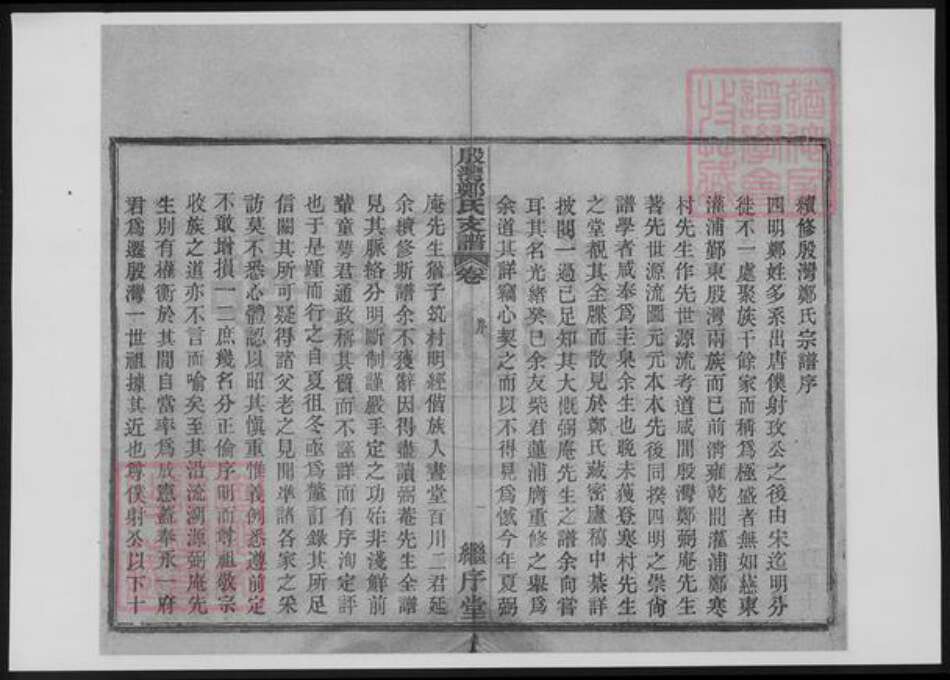 續修殷灣鄭氏宗譜序
四明鄭姓多系出唐僕射攷公之後由宋迄明分
徙不一處聚族千餘家而稱爲極盛者無如慈東
灌浦鄞東殷灣兩族而已前淸雍乾間灌浦鄭寒
村先生作先世源流考道咸間殷灣鄭弼庵先生
著先世源流圖元元本本先後同揆四明之崇尙
譜學者咸奉爲主臬余生也晚未獲登寒村先生
之堂覩其全牒而散見於鄭氏藏密廬稿中綦詳
披閱一過已足知其大槪弼庵先生之譜余向嘗
耳其名光緒癸巳余友柴君蓮浦膺重修之舉爲
余道其詳竊心契之而以不得見爲憾今年夏弼
殷灣鄭氏支譜
卷
序
一
繼序堂
庵先生猶子筑村明經偕族人晝堂百川二君延
余續修斯譜余不獲辭因得盡讀弼菴先生全譜
見其脈絡分明斷制謹嚴手定之功始非淺鮮前
輩童萼君通政稱其質而不誣詳而有序洵定評
也于是踵而行之自夏徂冬亟爲釐訂錄其所足
信闕其所可疑得諸父老之見聞準諸各家之采
訪莫不悉心體認以昭其愼重惟義例悉遵前定
不敢增損一二庶幾名分正倫序明而尊祖敬宗
收族之道亦不言而喻矣至其沿流溯源弼庵先
生別有權衡於其間自當率爲成憲蓋奉承一府
君爲遷殷灣一世祖據其近也尊僕射公以下十